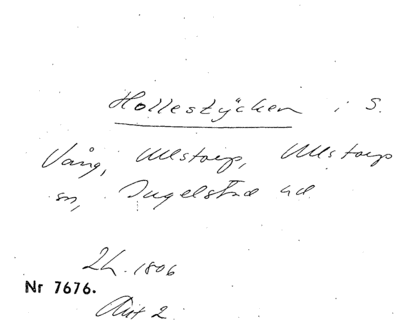 Hollestycken i S.
Vång, Ullstorp, Ullstorp
sn, Ingelstad hd
2h. 1806
Nr 7676.
Akt 2